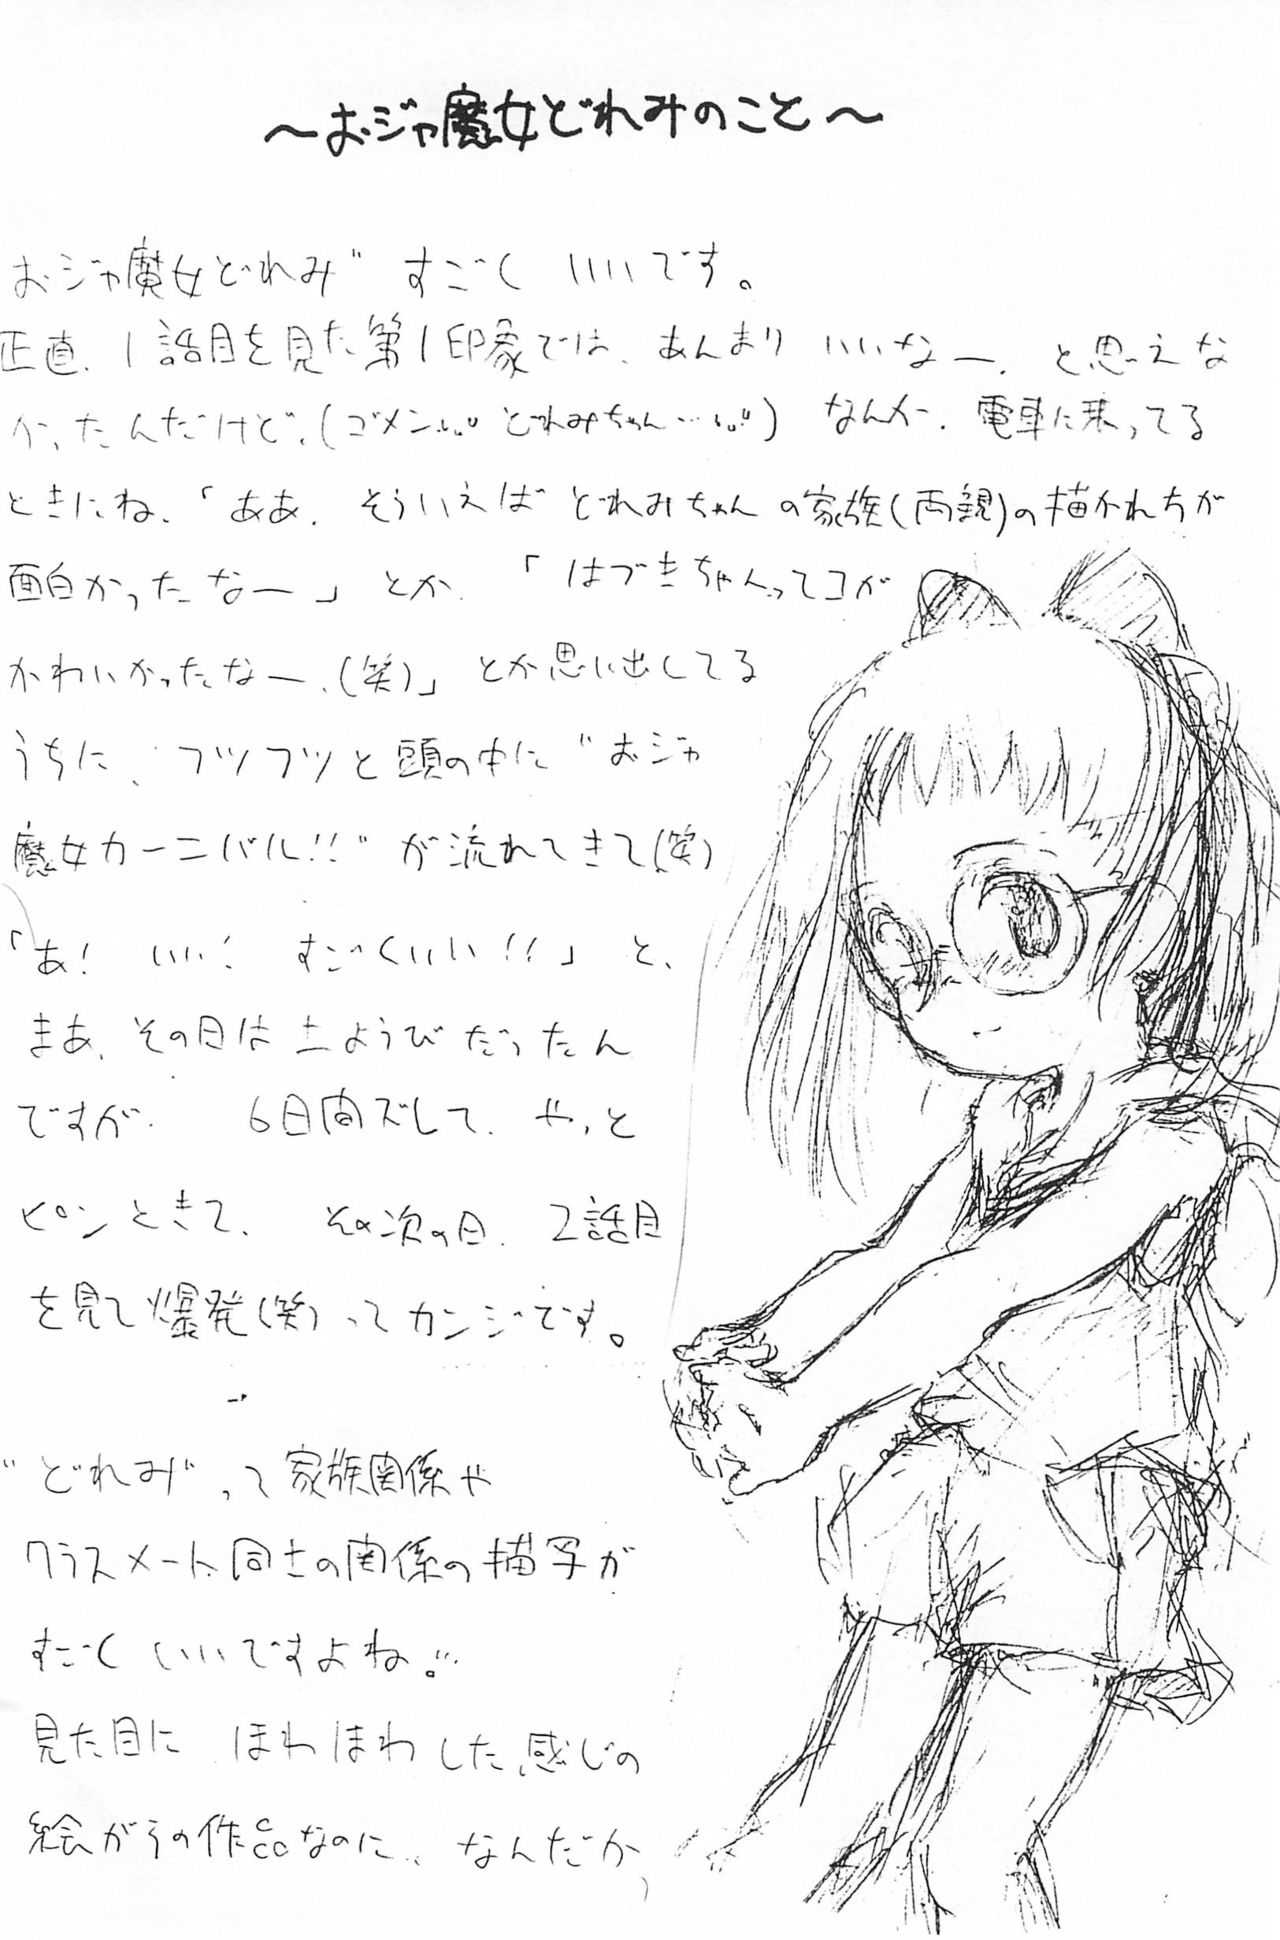 ～おジャ魔女どれみのこと～
おジャ魔女どれみ" すごく いいです。
正直、1話目を見た第1印象では、あんまり いいなー、と思えな
かったんだけど、(ゴメン… どれみちゃん…) なんか、電車に乗ってる
ときにね、「ああ、そういえば どれみちゃんの家族(両親)の描かれ方が
面白かったなー」とか、「はづきちゃんってコが
かわいかったなー、(笑)」とか思い出してる
うちに、フツフツと頭の中に"おジャ
魔女カーニバル!!"が流れてきて(笑)
「あ! いい! すごくいい!!」と、
まあ、その日は土ようびだったん
ですが、 6日間ズレて、やっと
ピンときて、 その次の日、2話目
を見て爆発(笑)ってカンジです。
"どれみ"って家族関係や
クラスメート同士の関係の描写が
すごく いいですよね。…
見た目に ほわほわした感じの
絵がらの作品なのに、なんだか、